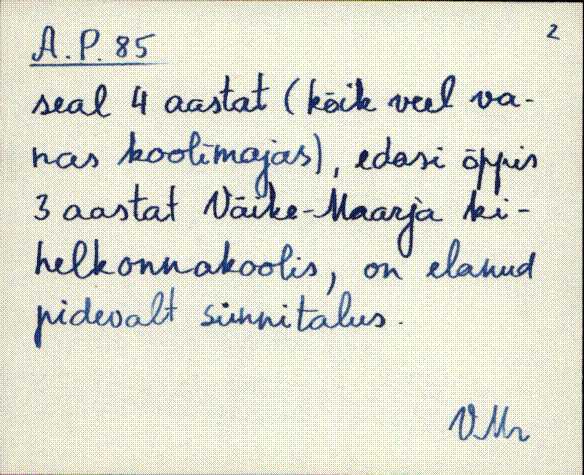 2
A.P. 85
seal 4 aastat (kõik veel va-
nas koolimajas), edasi õppis
3 aastat Väike-Maarja ki-
helkonnakoolis, on elanud
pidevalt sünnitalus.
VMr